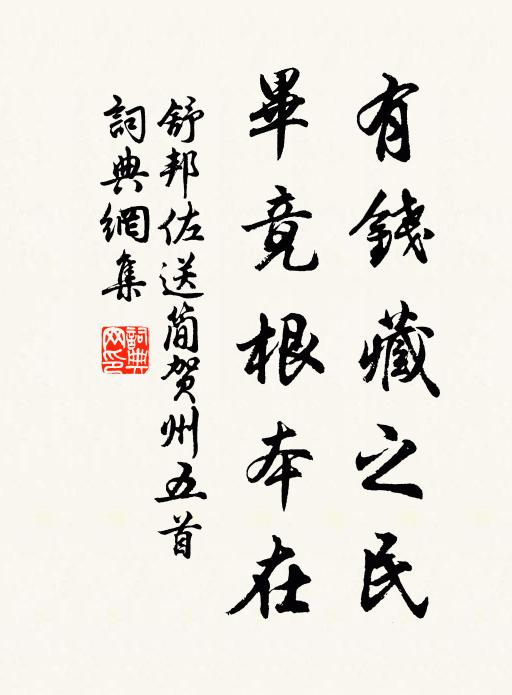 有錢藏之民
畢竟根本在
舒邦佐送簡賀州五首
詞典網集
詞典网印